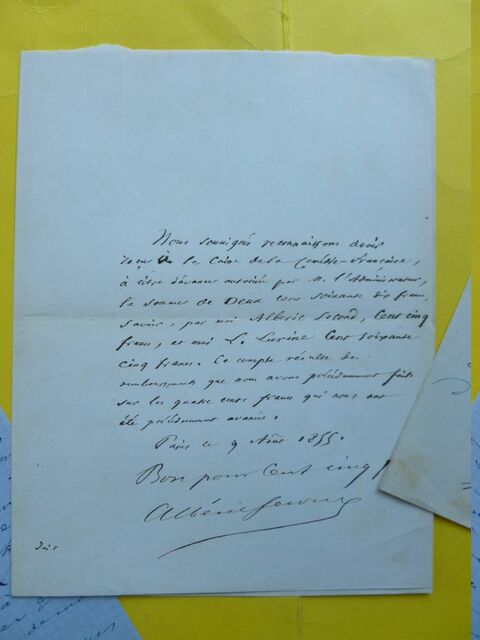 Nous soussignés reconnaissons avoir
reçu à la Caisse de la Comédie-Française,
à titre d'avance autorisée par M. l'Administrateur,
la somme de Deux cent soixante dix francs,
savoir, par moi Albéric Second, Cent cinq
francs, et moi L. Lurine Cent soixante
cinq francs. Ce compte résulte des
remboursements que nous avons précédemment faits
sur les quatre cents francs qui nous ont
été précédemment avancés.
Paris le 9 Août 1855.
Bon pour Cent cinq f
Albéric Second